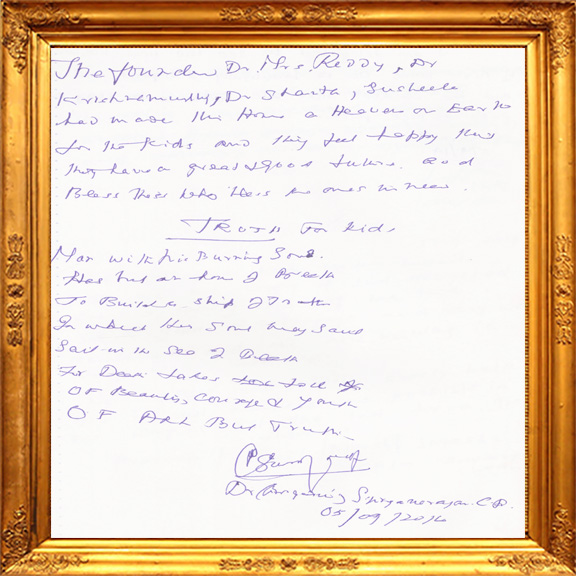 The founder Dr. Mrs. Reddy, Dr
Krishnamurthy, Dr Sharta, Susheela
had made this Home a Heaven on Earth
for the Kids and they feel happy here
They have a great & good future. God
Bless Those who bless the ones in need.
TRUTH For kids
Man with his Burning Soul
Has but an hour of Breath
To Build a ship of Truth
In which his Soul may sail
Sail on the Sea of Death
For Death takes toll
OF Beauty, Courage & Youth
OF All But Truth
Dr Suryanarayan C.P.
05/09/2016